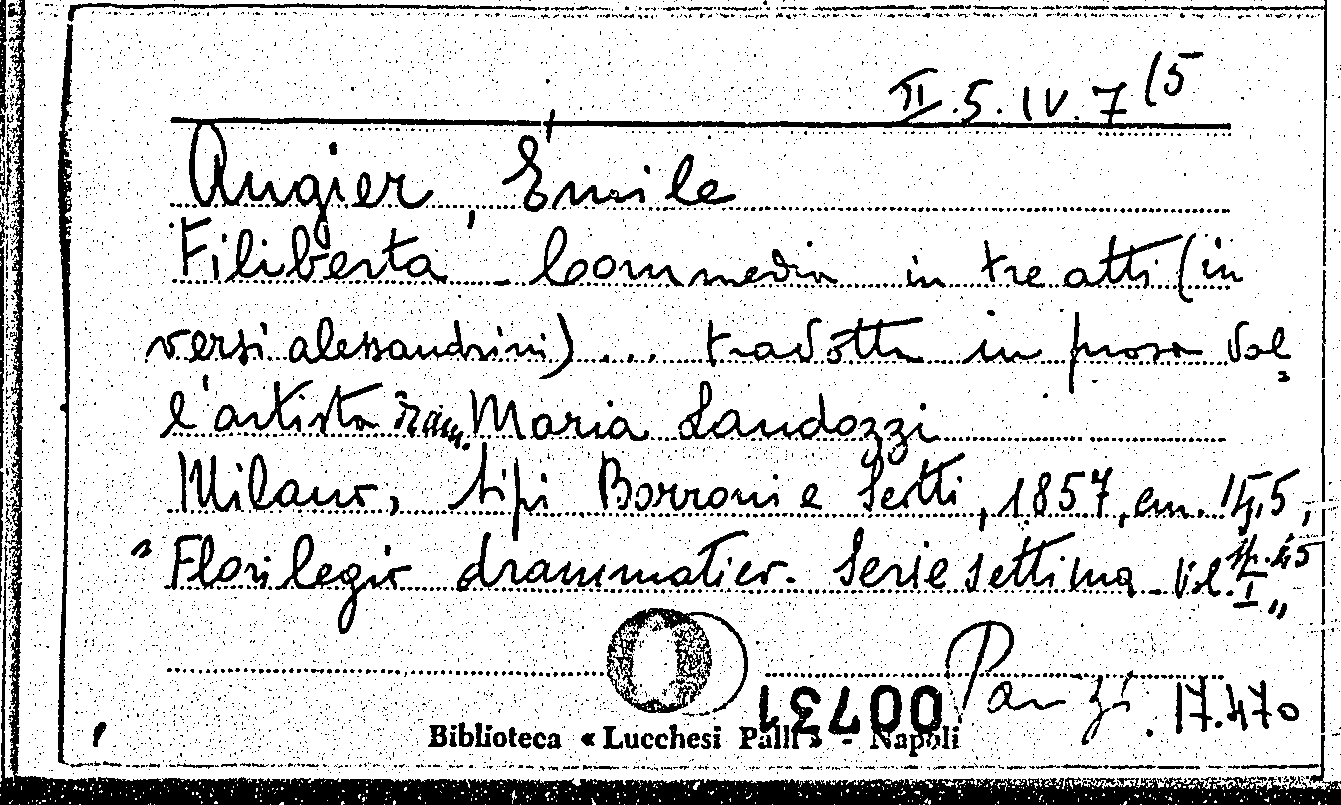 II.5.IV.7(5
Augier, Émile
Filiberta - Commedia in tre atti (in
versi alessandrini)... tradotta in prosa dal=
l'artista dram. Maria Landozzi
Milano, tipi Borroni e Scotti, 1857, cm. 15,5,
"Florilegio drammatico. Serie settima - Vol. I"
pp. 45
Panzi. 17.470
00731
Biblioteca « Lucchesi Palli » - Napoli